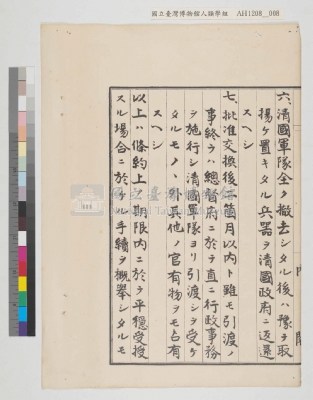 國立臺灣博物館人類學組 AH1208_008
六、清國軍隊全ク撤去シタル後ハ豫テ取
揚ケ置キタル兵器ヲ清國政府ニ返還
スヘシ
七、批准交換後二箇月以内ト雖モ引渡ノ
事終ラハ總督府ニ於テ直ニ行政事務
ヲ施行シ清國軍隊ヨリ引渡シヲ受ケ
タルモノヽ外其他ノ官有物ヲモ占有
スヘシ
以上ハ條約上ノ期限内ニ於テ平穩受授
スル場合ニ於ケル手續ヲ概擧シタルモ
内閣